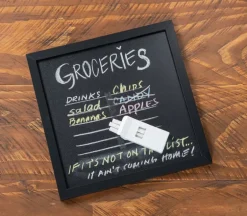 GROCERIES
DRINKS CHIPS
Salad CANDY
Bananas APPLES
IF IT'S NOT ON THE LIST...
IT AIN'T COMING HOME!